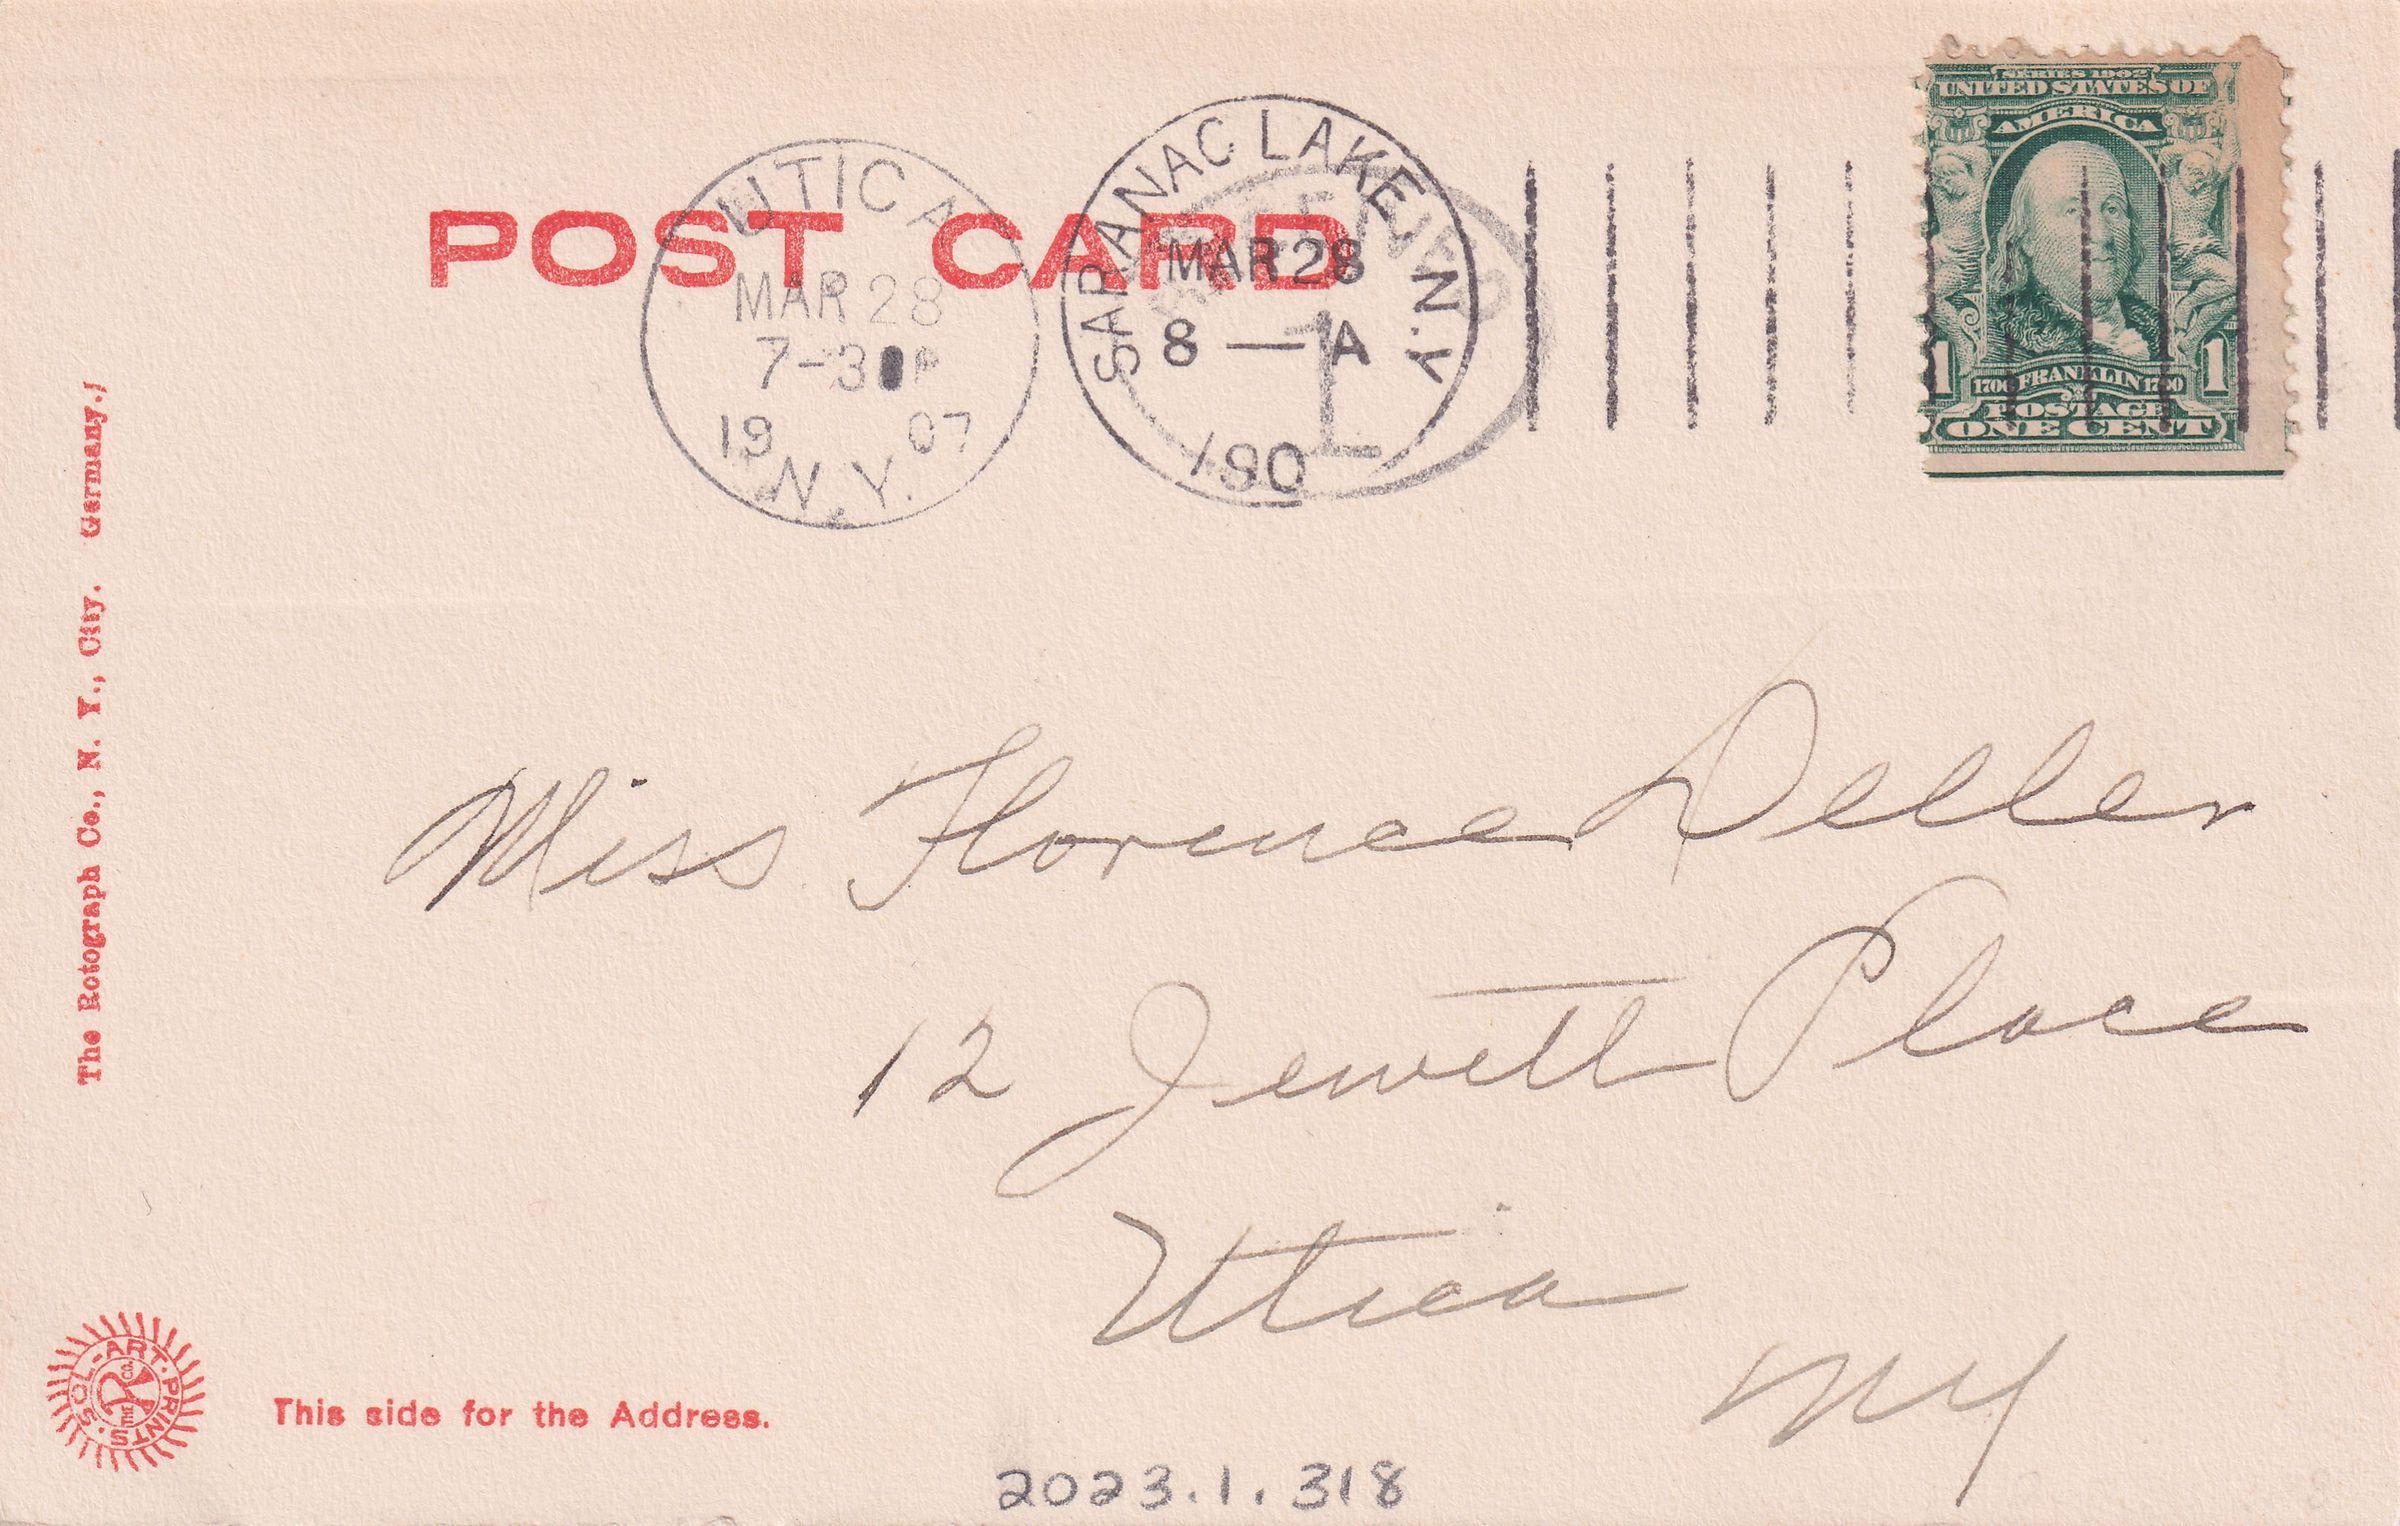 POST CARD
UTICA
MAR 28
7-30P
1907
N.Y.
SARANAC LAKE, N.Y.
MAR 28
8 — A
190
RECEIVED
1
SERIES 1902
UNITED STATES OF
AMERICA
1 1706 FRANKLIN 1790 1
POSTAGE
ONE CENT
The Rotograph Co., N. Y., City. Germany.)
Miss Florence Deller
12 Jewett Place
Utica
NY
SOL-ART-PRINTS
THE Co
This side for the Address.
2023.1.318